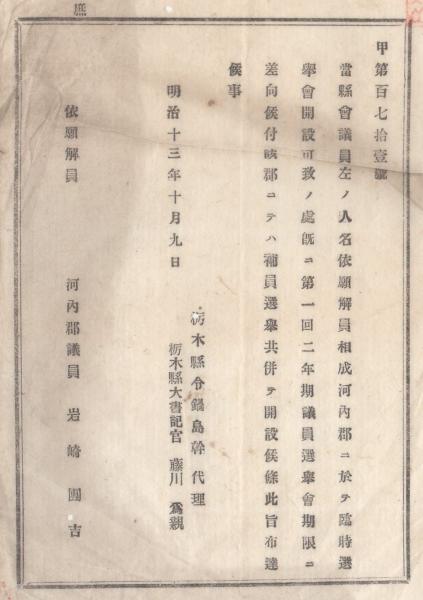 庶
甲第百七拾壹號
當縣會議員左ノ人名依願解員相成河內郡ニ於テ臨時選
擧會開設可致ノ處既ニ第一回二年期議員選擧會期限ニ
差向候付該郡ニテハ補員選擧共併テ開設候條此旨布達
候事
明治十三年十月九日
栃木縣令鍋島幹代理
栃木縣大書記官 藤川爲親
依願解員 河內郡議員 岩﨑團吉